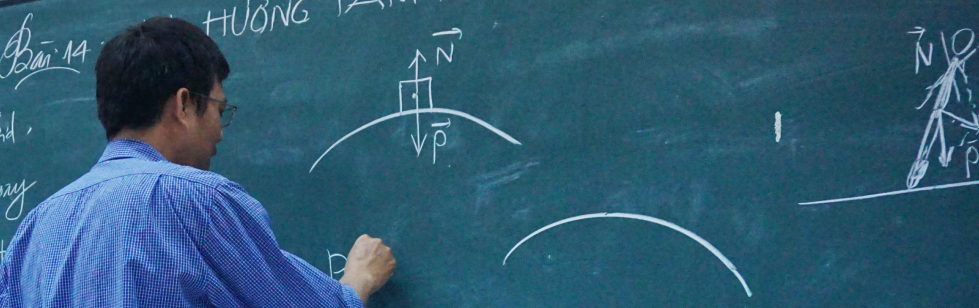 Bài 14
HƯỚNG TÂM
N⃗
P⃗
N⃗
P⃗
P